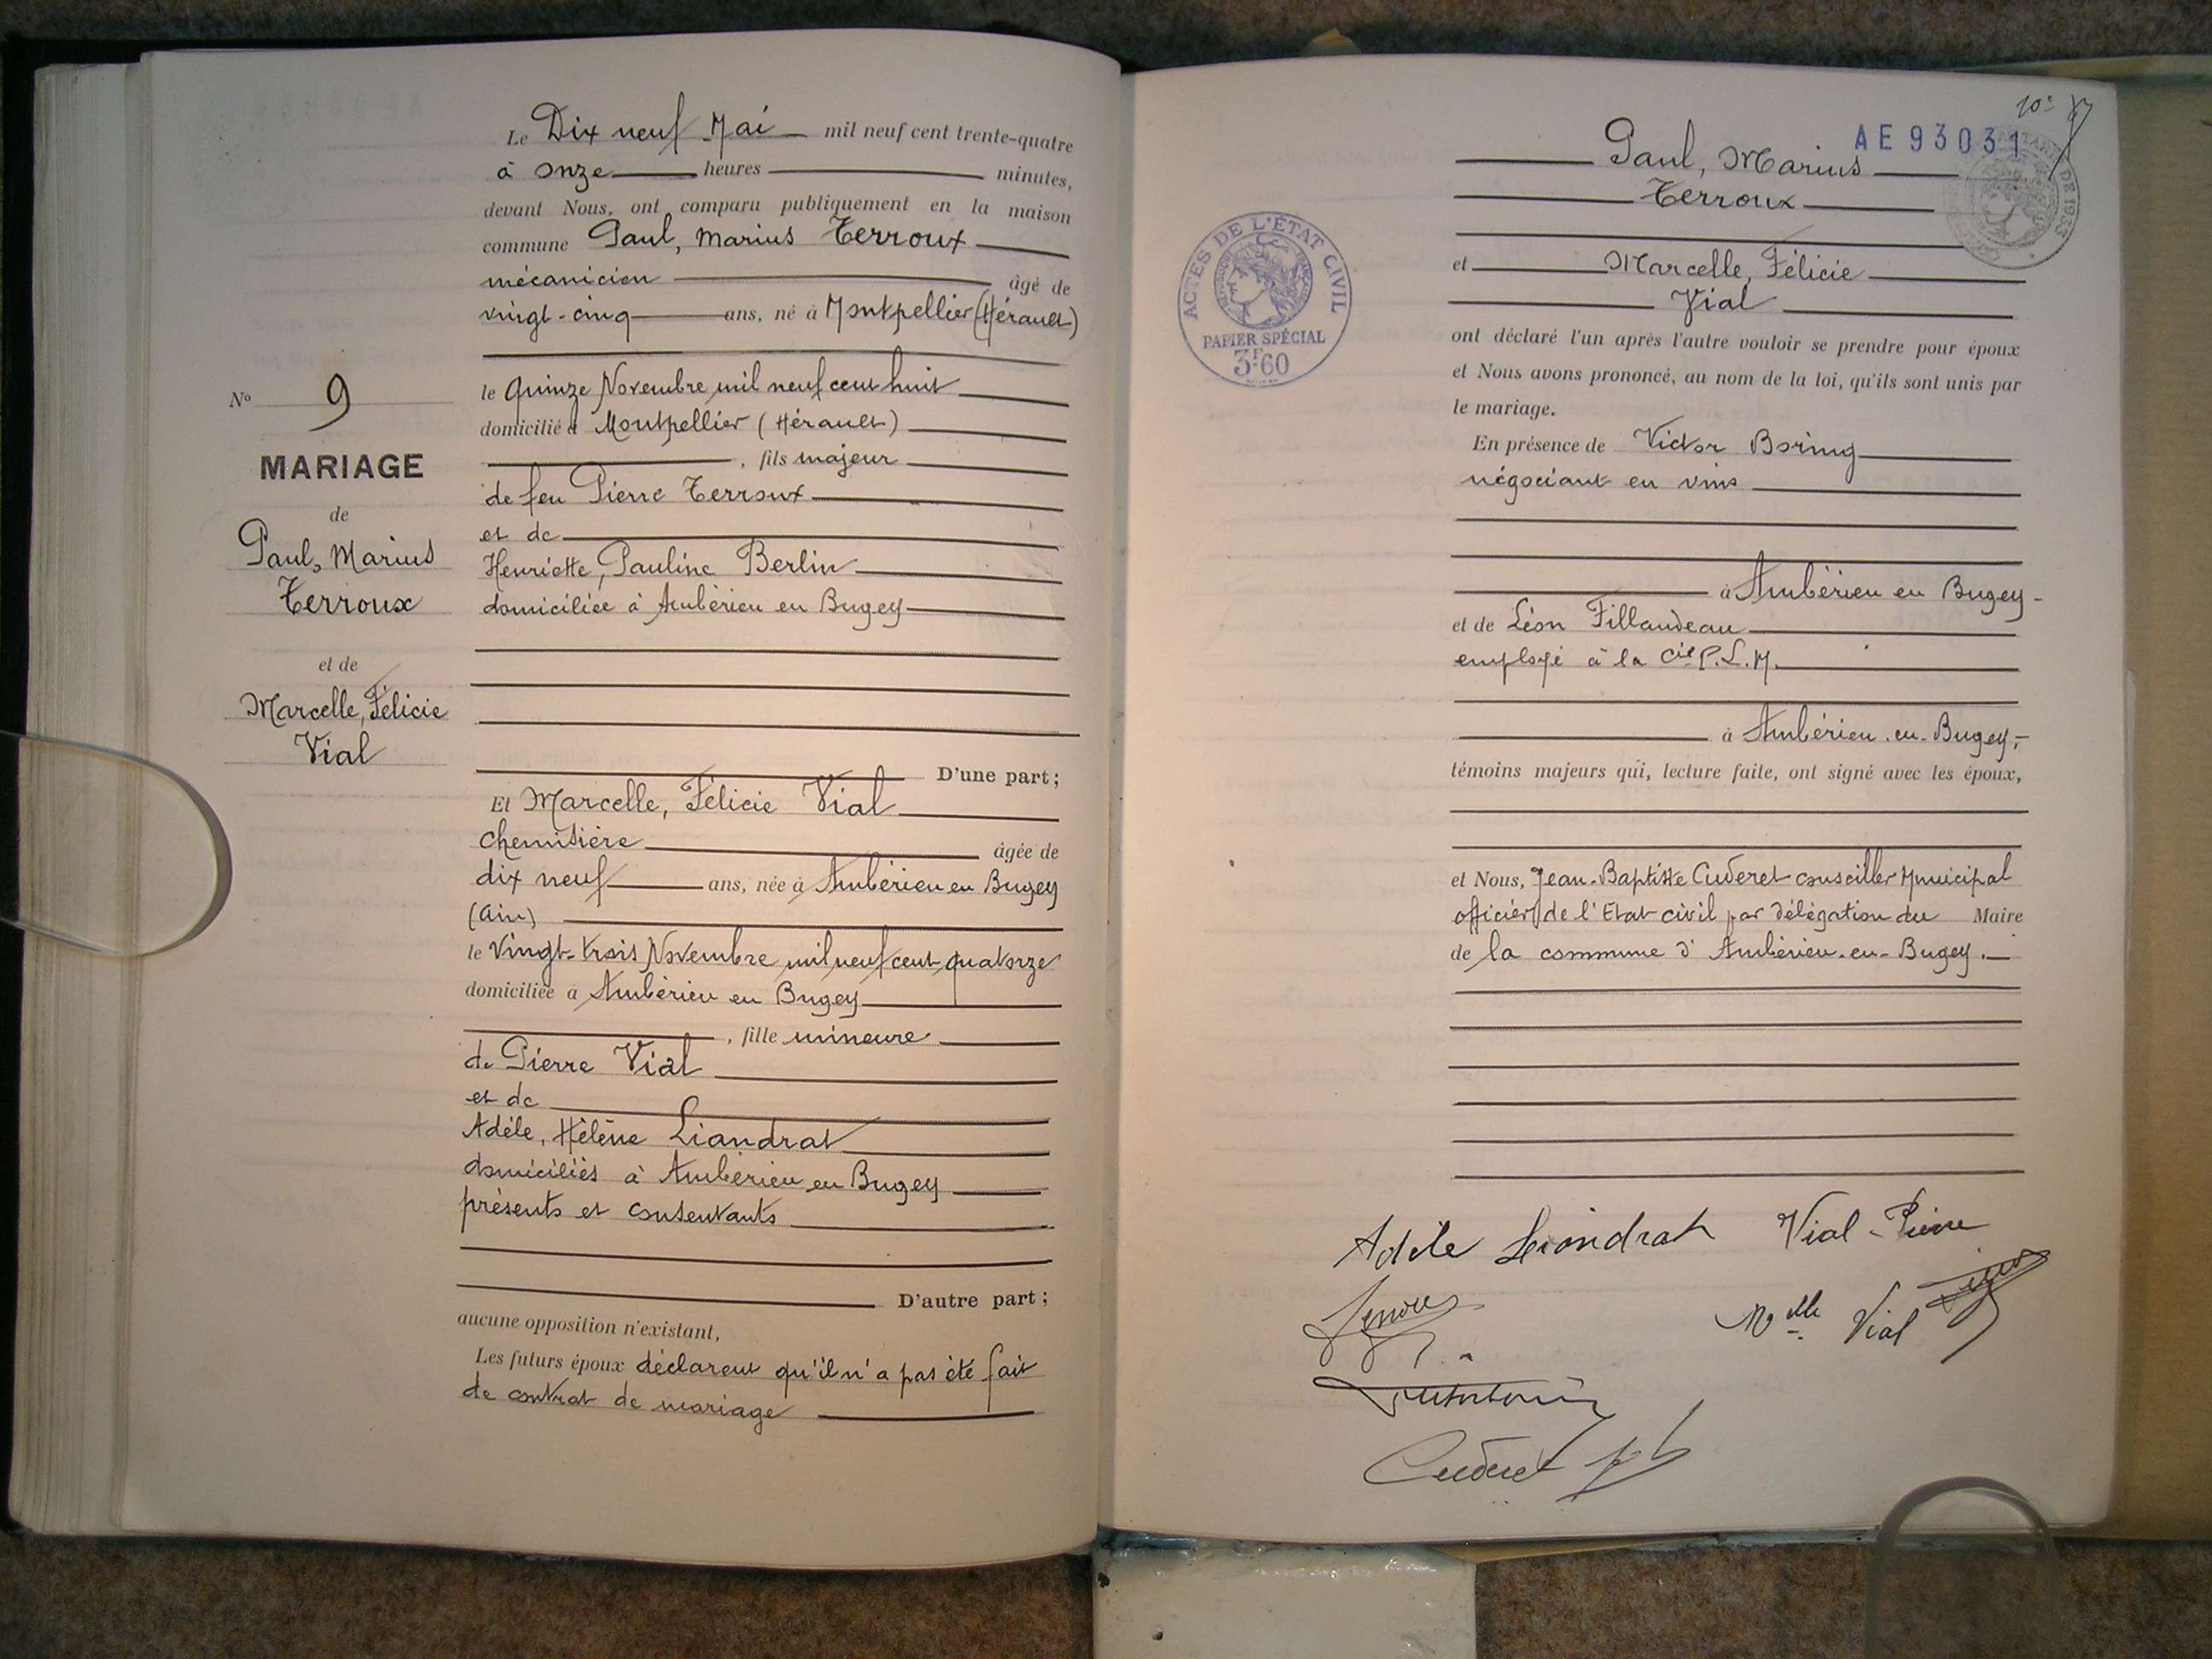 Le Dix neuf Mai mil neuf cent trente-quatre
à onze heures minutes,
devant Nous, ont comparu publiquement en la maison
commune Paul, Marius Terroux
mécanicien âgé de
vingt-cinq ans, né à Montpellier (Hérault)
le quinze Novembre mil neuf cent huit
domicilié à Montpellier (Hérault)
, fils majeur
de feu Pierre Terroux
et de
Henriette, Pauline Berlin
domiciliée à Ambérieu en Bugey
D'une part;
No 9
MARIAGE
de
Paul, Marius
Terroux
et de
Marcelle, Félicie
Vial
Et Marcelle, Félicie Vial
chemisière âgée de
dix neuf ans, née à Ambérieu en Bugey
(Ain)
le vingt-trois Novembre mil neuf cent quatorze
domiciliée à Ambérieu en Bugey
, fille mineure
de Pierre Vial
et de
Adèle, Hélène Liandrat
domiciliés à Ambérieu en Bugey
présents et consentants
D'autre part;
aucune opposition n'existant,
Les futurs époux déclarent qu'il n'a pas été fait
de contrat de mariage
AE 93031
Paul, Marius
Terroux
et Marcelle, Félicie
Vial
ACTES DE L'ÉTAT CIVIL
PAPIER SPÉCIAL
3F60
ont déclaré l'un après l'autre vouloir se prendre pour époux
et Nous avons prononcé, au nom de la loi, qu'ils sont unis par
le mariage.
En présence de Victor Boring
négociant en vins
à Ambérieu en Bugey
et de Léon Fillaudeau
employé à la Cie P.L.M.
à Ambérieu-en-Bugey,
témoins majeurs qui, lecture faite, ont signé avec les époux,
et Nous, Jean-Baptiste Cuderet conseiller Municipal
officier de l'Etat civil par délégation du Maire
de la commune d'Ambérieu-en-Bugey.
Adèle Liandrat Vial-Pierre
Melle Vial
Cuderet